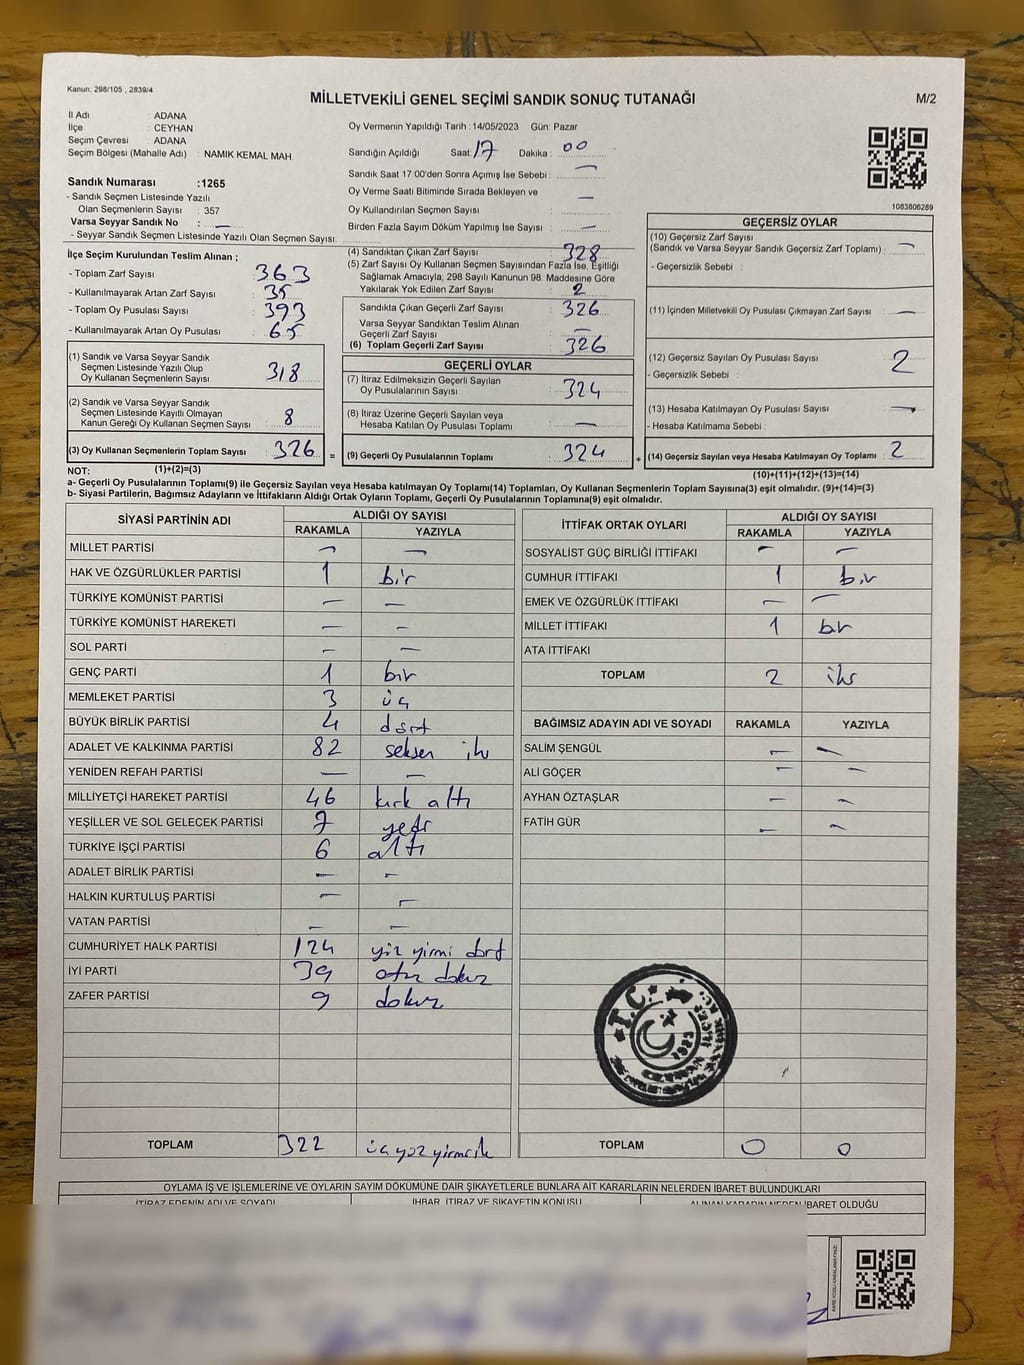 Kanun: 298/105 , 2839/4
MİLLETVEKİLİ GENEL SEÇİMİ SANDIK SONUÇ TUTANAĞI
M/2
İl Adı : ADANA
İlçe : CEYHAN
Seçim Çevresi : ADANA
Seçim Bölgesi (Mahalle Adı) : NAMIK KEMAL MAH.
Sandık Numarası :1265
- Sandık Seçmen Listesinde Yazılı
Olan Seçmenlerin Sayısı : 357
Varsa Seyyar Sandık No : —
- Seyyar Sandık Seçmen Listesinde Yazılı Olan Seçmen Sayısı:
Oy Vermenin Yapıldığı Tarih :14/05/2023 Gün: Pazar
Sandığın Açıldığı Saat: 17 Dakika : 00
Sandık Saat 17:00'den Sonra Açımış İse Sebebi : —
Oy Verme Saati Bitiminde Sırada Bekleyen ve
Oy Kullandırılan Seçmen Sayısı : —
Birden Fazla Sayım Döküm Yapılmış İse Sayısı : —
1083806289
İlçe Seçim Kurulundan Teslim Alınan ;
- Toplam Zarf Sayısı : 363
- Kullanılmayarak Artan Zarf Sayısı : 35
- Toplam Oy Pusulası Sayısı : 393
- Kullanılmayarak Artan Oy Pusulası : 65
(1) Sandık ve Varsa Seyyar Sandık
Seçmen Listesinde Yazılı Olup
Oy Kullanan Seçmenlerin Sayısı : 318
(2) Sandık ve Varsa Seyyar Sandık
Seçmen Listesinde Kayıtlı Olmayan
Kanun Gereği Oy Kullanan Seçmen Sayısı : 8
(3) Oy Kullanan Seçmenlerin Toplam Sayısı : 326 =
(4) Sandıktan Çıkan Zarf Sayısı : 328
(5) Zarf Sayısı Oy Kullanan Seçmen Sayısından Fazla İse, Eşitliği
Sağlamak Amacıyla; 298 Sayılı Kanunun 98. Maddesine Göre
Yakılarak Yok Edilen Zarf Sayısı : 2
Sandıkta Çıkan Geçerli Zarf Sayısı : 326
Varsa Seyyar Sandıktan Teslim Alınan
Geçerli Zarf Sayısı : —
(6) Toplam Geçerli Zarf Sayısı : 326
GEÇERLİ OYLAR
(7) İtiraz Edilmeksizin Geçerli Sayılan
Oy Pusulalarının Sayısı : 324
(8) İtiraz Üzerine Geçerli Sayılan veya
Hesaba Katılan Oy Pusulası Toplamı : —
(9) Geçerli Oy Pusulalarının Toplamı : 324 +
GEÇERSİZ OYLAR
(10) Geçersiz Zarf Sayısı
(Sandık ve Varsa Seyyar Sandık Geçersiz Zarf Toplamı) : —
- Geçersizlik Sebebi :
(11) İçinden Milletvekili Oy Pusulası Çıkmayan Zarf Sayısı : —
(12) Geçersiz Sayılan Oy Pusulası Sayısı : 2
- Geçersizlik Sebebi :
(13) Hesaba Katılmayan Oy Pusulası Sayısı : —
- Hesaba Katılmama Sebebi :
(14) Geçersiz Sayılan veya Hesaba Katılmayan Oy Toplamı : 2
NOT: (1)+(2)=(3) (10)+(11)+(12)+(13)=(14)
a- Geçerli Oy Pusulalarının Toplamı(9) ile Geçersiz Sayılan veya Hesaba katılmayan Oy Toplamı(14) Toplamları, Oy Kullanan Seçmenlerin Toplam Sayısına(3) eşit olmalıdır. (9)+(14)=(3)
b- Siyasi Partilerin, Bağımsız Adayların ve İttifakların Aldığı Ortak Oyların Toplamı, Geçerli Oy Pusulalarının Toplamına(9) eşit olmalıdır.
SİYASİ PARTİNİN ADI ALDIĞI OY SAYISI
RAKAMLA YAZIYLA
MİLLET PARTİSİ — —
HAK VE ÖZGÜRLÜKLER PARTİSİ 1 bir
TÜRKİYE KOMÜNİST PARTİSİ — —
TÜRKİYE KOMÜNİST HAREKETİ — —
SOL PARTİ — —
GENÇ PARTİ 1 bir
MEMLEKET PARTİSİ 3 üç
BÜYÜK BİRLİK PARTİSİ 4 dört
ADALET VE KALKINMA PARTİSİ 82 seksen iki
YENİDEN REFAH PARTİSİ — —
MİLLİYETÇİ HAREKET PARTİSİ 46 kırk altı
YEŞİLLER VE SOL GELECEK PARTİSİ 7 yedi
TÜRKİYE İŞÇİ PARTİSİ 6 altı
ADALET BİRLİK PARTİSİ — —
HALKIN KURTULUŞ PARTİSİ — —
VATAN PARTİSİ — —
CUMHURİYET HALK PARTİSİ 124 yüz yirmi dört
İYİ PARTİ 39 otuz dokuz
ZAFER PARTİSİ 9 dokuz
TOPLAM 322 üçyüz yirmi iki
İTTİFAK ORTAK OYLARI ALDIĞI OY SAYISI
RAKAMLA YAZIYLA
SOSYALİST GÜÇ BİRLİĞİ İTTİFAKI — —
CUMHUR İTTİFAKI 1 bir
EMEK VE ÖZGÜRLÜK İTTİFAKI — —
MİLLET İTTİFAKI 1 bir
ATA İTTİFAKI
TOPLAM 2 iki
BAĞIMSIZ ADAYIN ADI VE SOYADI RAKAMLA YAZIYLA
SALİM ŞENGÜL — —
ALİ GÖÇER — —
AYHAN ÖZTAŞLAR — —
FATİH GÜR — —
T.C.
TOPLAM 0 0
OYLAMA İŞ VE İŞLEMLERİNE VE OYLARIN SAYIM DÖKÜMÜNE DAİR ŞİKAYETLERLE BUNLARA AİT KARARLARIN NELERDEN İBARET BULUNDUKLARI
İTİRAZ EDENİN ADI VE SOYADI İHBAR, İTİRAZ VE ŞİKAYETİN KONUSU ALINAN KARARIN NEDEN İBARET OLDUĞU
KARE KODU KARALAMAYINIZ!